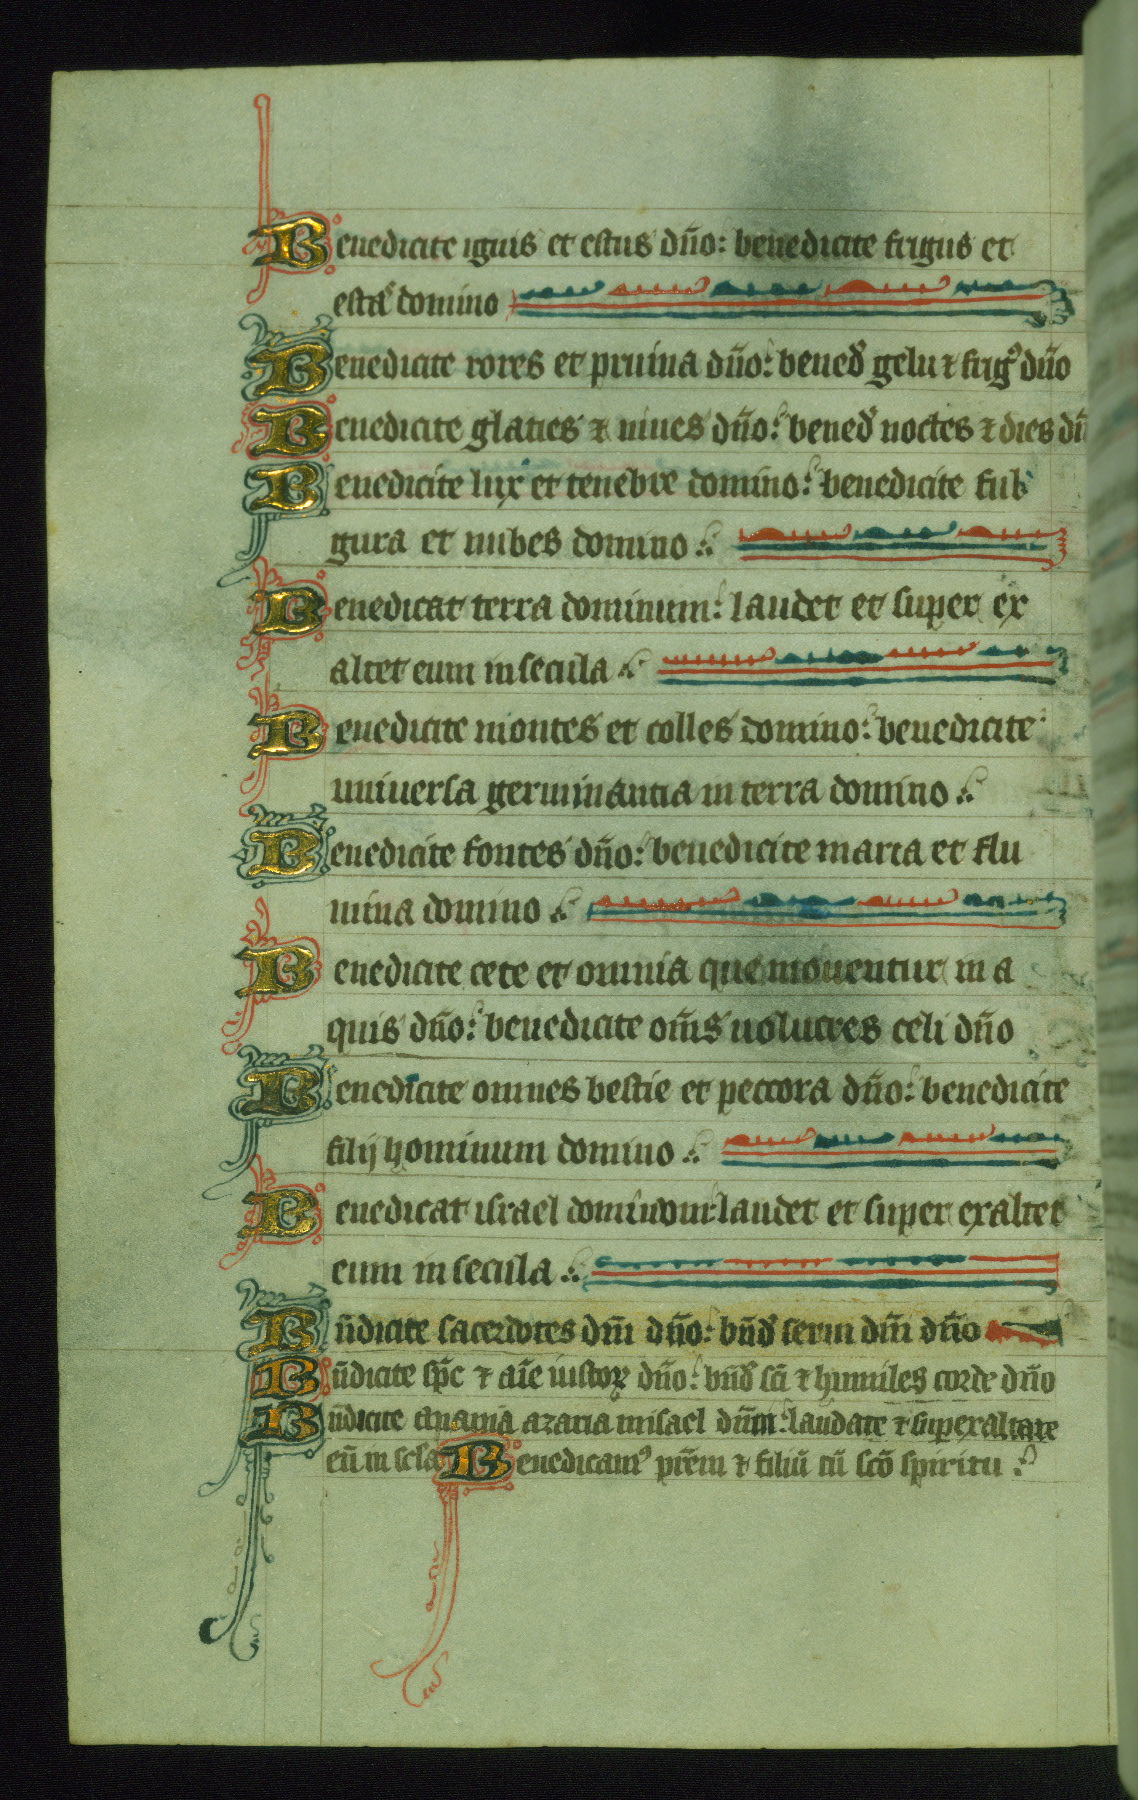 Benedicite ignis et estus dño: benedicite frigus et
esta᷒ domino
Benedicite rores et pruina dño: bened̄ gelu ⁊ frigꝰ dño
Benedicite glacies ⁊ niues dño: bened̄ noctes ⁊ dies dñ
Benedicite lux et tenebre domino: benedicite ful
gura et nubes domino
Benedicat terra dominum: laudet et super ex
altet eum in secula
Benedicite montes et colles domino: benedicite
uniuersa germinantia in terra domino
Benedicite fontes dño: benedicite maria et flu
mina domino
Benedicite cete et omnia que mouentur in a
quis dño: benedicite om̄s uolucres celi dño
Benedicite omnes bestie et peccora dño: benedicite
filij hominum domino
Benedicat israel dominum: laudet et super exaltet
eum in secula
Bn̄dicite sacerdotes dñi dño: bn̄d̄ serui dñi dño
Bn̄dicite sp̄c ⁊ aīe iustoꝝ dño: bn̄d̄ sc̄i ⁊ humiles corde dño
Bn̄dicite anania azaria misael dñm: laudate ⁊ superexaltate
eū in sc̄la Benedicamꝰ pr̄em ⁊ filiū cū sc̄o spiritu